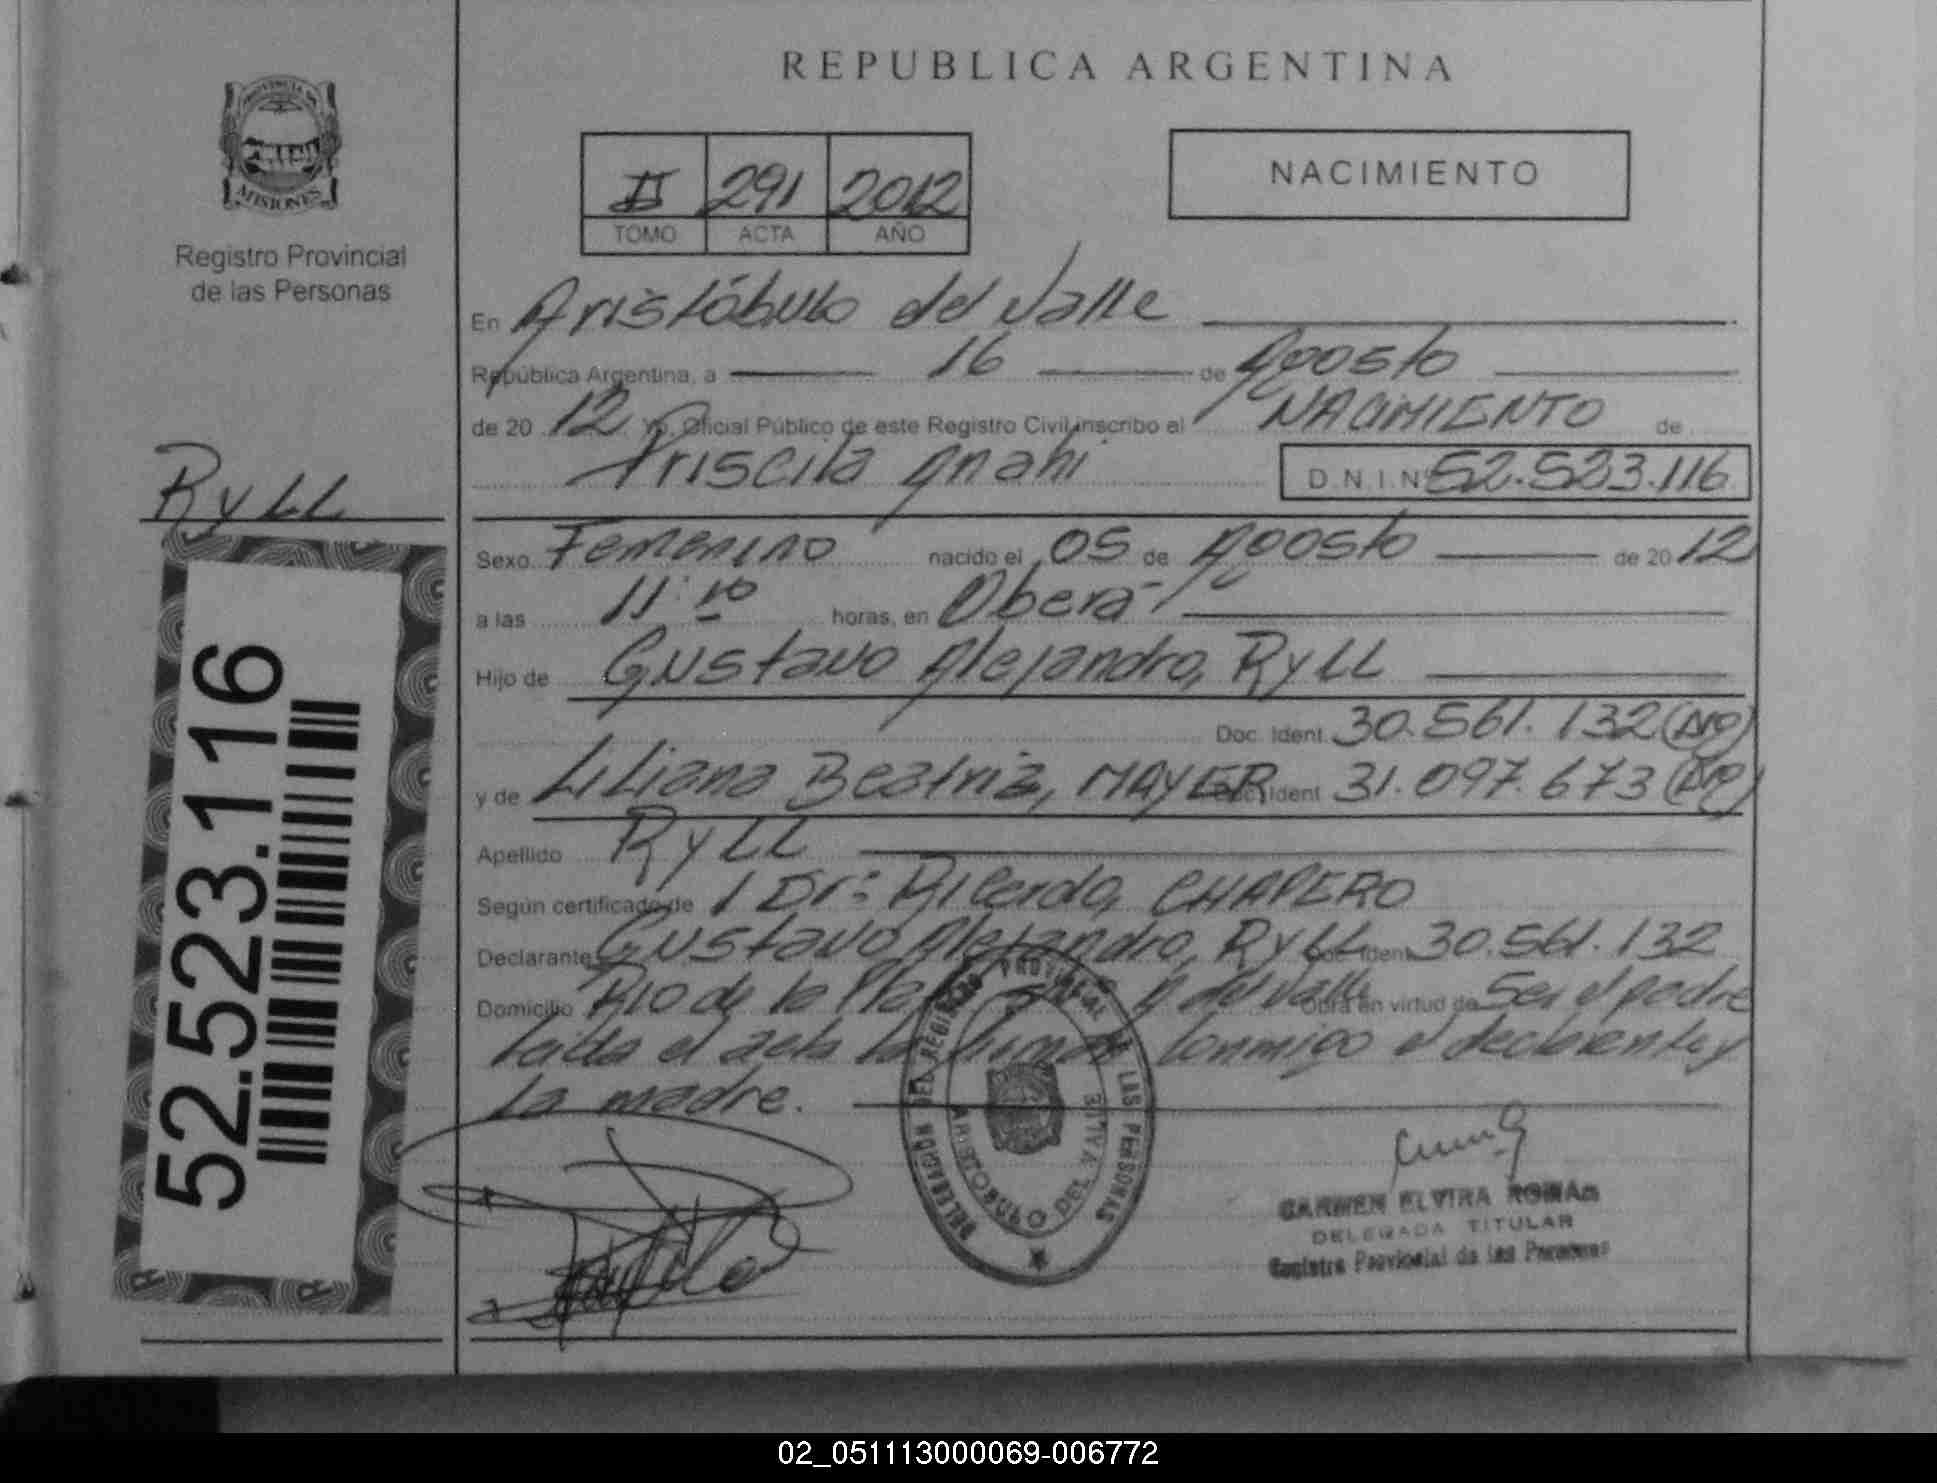 REPUBLICA ARGENTINA
PROVINCIA DE
MISIONES
Registro Provincial
de las Personas
II 291 2012
TOMO ACTA AÑO
NACIMIENTO
En Aristóbulo del Valle
República Argentina, a 16 de Agosto
de 20 12 Yo, Oficial Público de este Registro Civil inscribo el NACIMIENTO de
Priscila Anahi D.N.I. Nº 52.523.116
RyLL
Sexo Femenino nacido el 05 de Agosto de 20 12
a las 11:10 horas, en Oberá
Hijo de Gustavo Alejandro, RyLL
Doc. Ident. 30.561.132 (Arg)
y de Liliana Beatriz, MAYER Doc. Ident 31.097.673 (Arg)
Apellido RyLL
Según certificado de 1 Dr: Ricardo, CHAPERO
Declarante Gustavo Alejandro, RyLL Doc. Ident 30.561.132
Domicilio Rio de la Plata A. del Valle Obra en virtud de Ser el padre
Leida el acta la firman conmigo el declarante y
la madre.
52.523.116
DELEGACION DEL REGISTRO PROVINCIAL DE LAS PERSONAS
ARISTOBULO DEL VALLE
CARMEN ELVIRA
DELEGADA TITULAR
Registro Provincial de las Personas
02_051113000069-006772